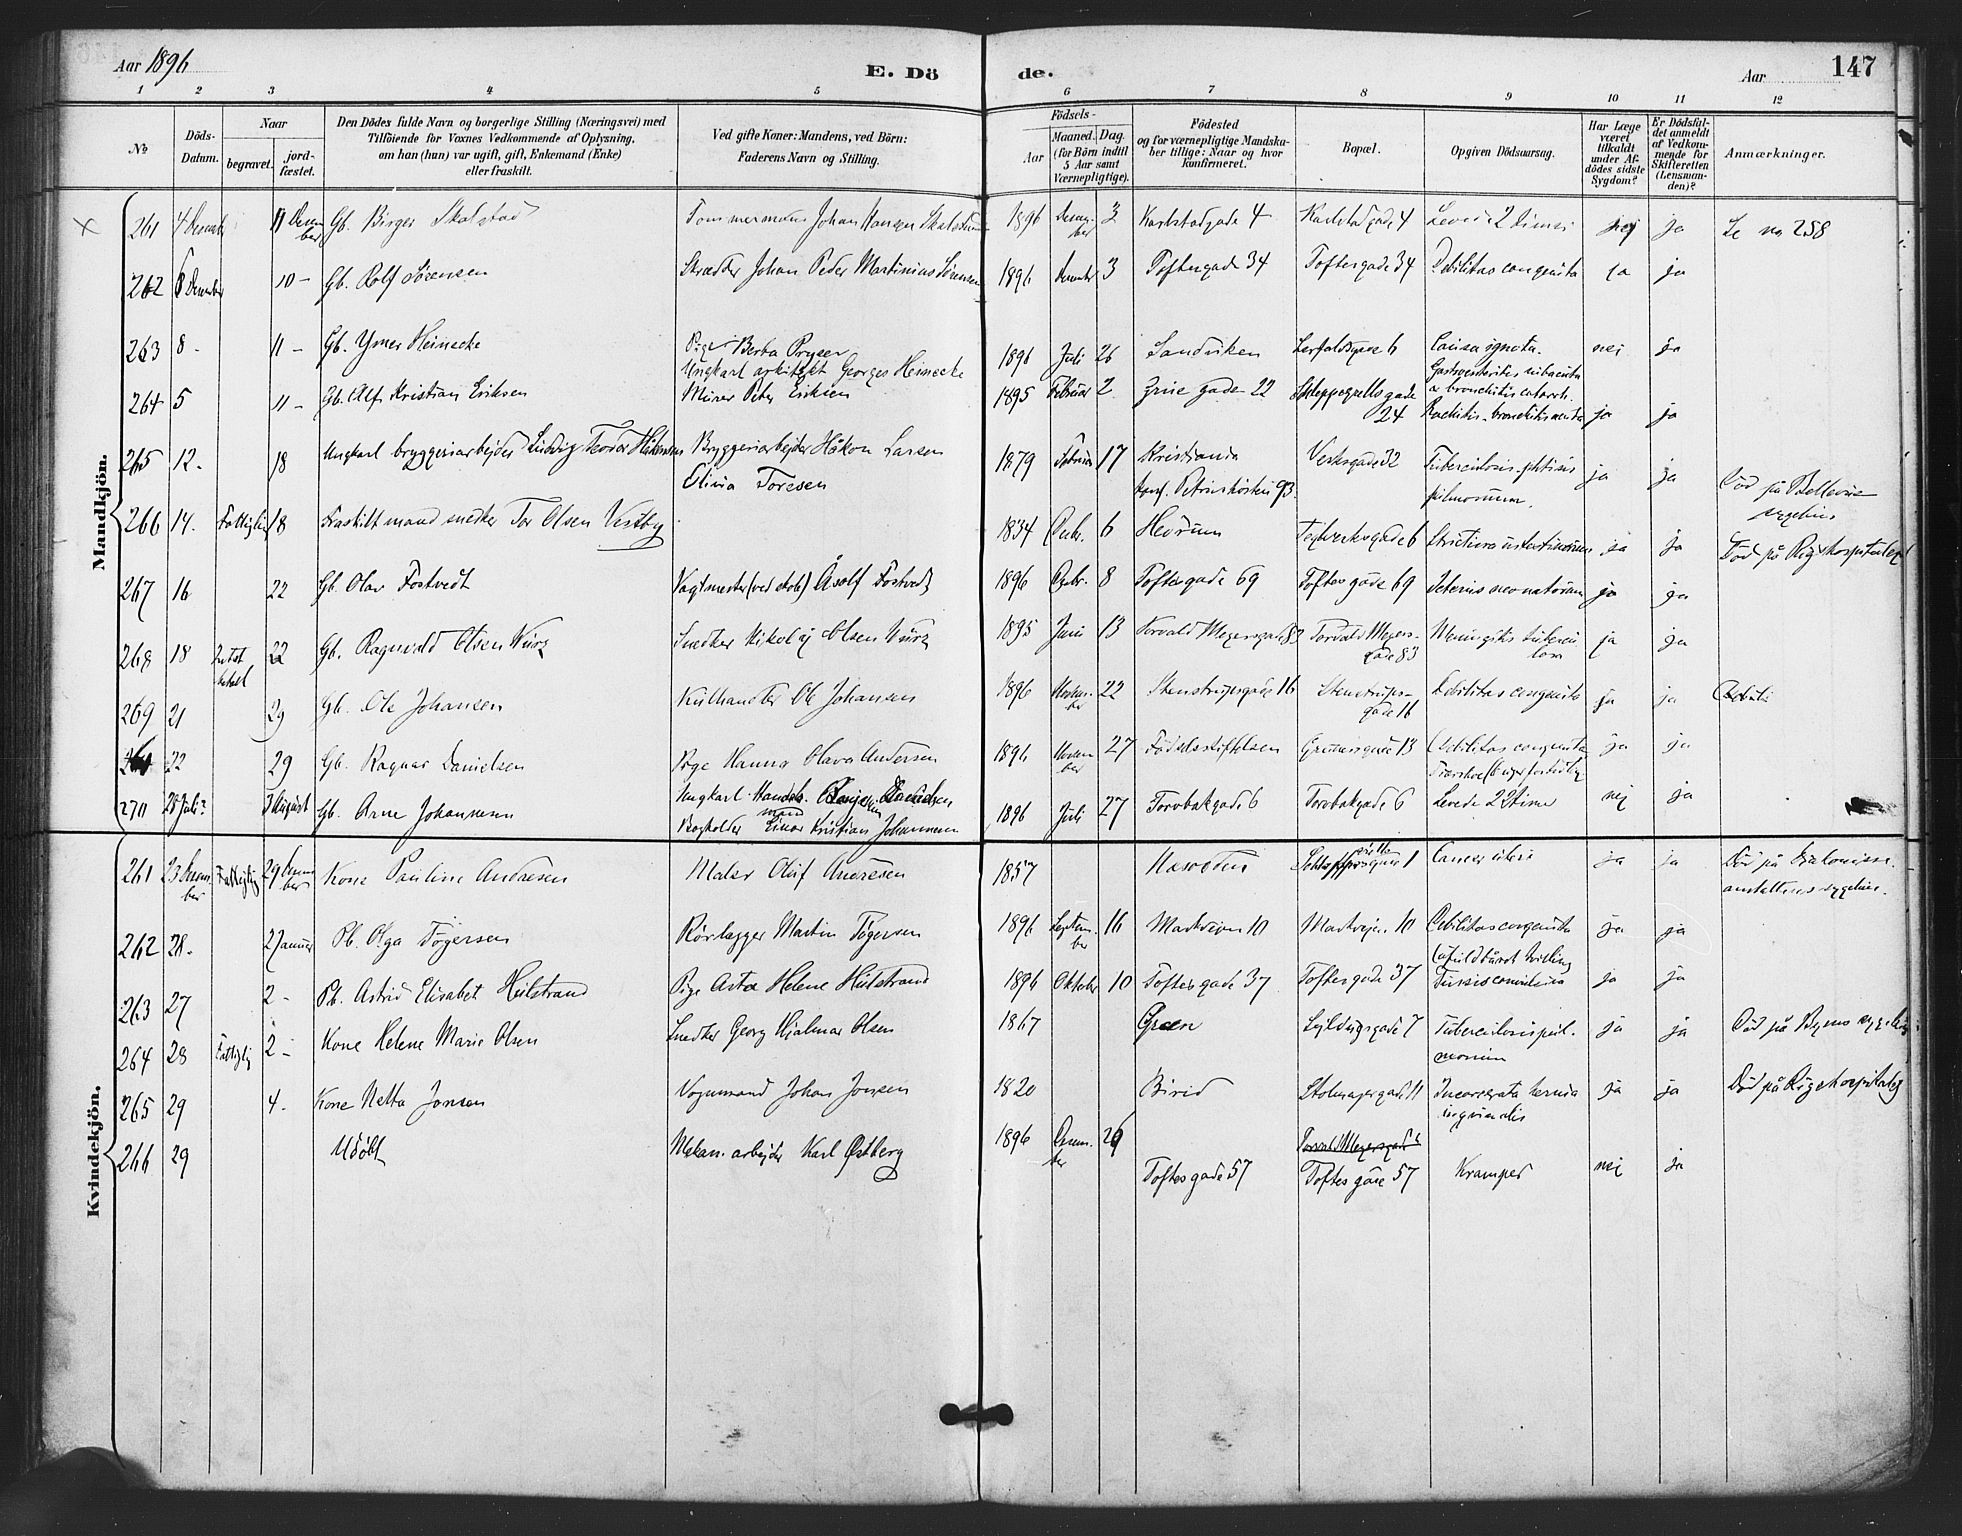 Aar 1896
E. Dö
de.
Aar
147
1 2 3 4 5 6 7 8 9 10 11 12
№
Döds-
Datum.
Naar
begravet.
jord-
fæstet.
Den Dödes fulde Navn og borgerlige Stilling (Næringsvei) med
Tilföiende for Voxnes Vedkommende af Oplysning,
om han (hun) var ugift, gift, Enkemand (Enke)
eller fraskilt.
Ved gifte Koner: Mandens, ved Börn:
Faderens Navn og Stilling.
Födsels-
Aar
Maaned. Dag.
(for Börn indtil
5 Aar samt
Værnepligtige).
Födested
og for værnepligtige Mandska-
ber tillige: Naar og hvor
konfirmeret.
Bopæl.
Opgiven Dödsaarsag.
Har Læge
været
tilkaldt
under Af-
dödes sidste
Sygdom?
Er Dödsfal-
det anmeldt
af Vedkom-
mende for
Skifteretten
(Lensman-
den)?
Anmærkninger.
Mandkjön.
261 4 Decemb 11 Decem ber Gb. Birger Skalstad Tømmermand Johan Hansen 1896 Decem ber 3 Karlstadgade 4 Karlstadgade 4 Levede 2 timer nej ja Se no 258
262 6 December 10 - Gb. Rolf Sørensen Skrædder Johan Peder Martinius Sørensen 1896 December 3 Toftesgade 34 Toftesgade 34 Debilitas congenita ja ja
263 8 - 11 - Gb. Ymer Heinecke Pige Berta Pryser
Ungkarl arkitekt Georges Heinecke 1896 Juli 26 Sandviken 6 Causa ignota. nei ja
264 5 11 - Gb. Alf Kristian Eriksen Murer Peter Eriksen 1895 Februar 2 Grue gade 22 Schleppegrells gade 24 Gastroenteritis subacuta
bronchitis catarrh.
Rachitis. bronchitis acuta ja ja
265 12. 18 Ungkarl bryggeriarbejder Ludvig Teodor Håkonsen Bryggeriarbejder Håkon Larsen
Olina Toresen 1879 Februar 17 Kristiania
konf. 93 Verksgade 32 Tuberculosis phtisis
pulmonum. ja ja Død på Bellevue
sygehus
266 14. Fattiglig 18 Fraskilt mand snedker Tor Olsen Vestby 1834 Decbr. 6 Hedrum Teglverksgade 6 ja ja Død på Rigshospitalet
267 16 22 Gb. Olav Fostvedt Vagtmester (ved Asolf Fostvedt 1896 Decbr. 8 Toftesgade 69 Toftesgade 69 Icterus neonatorum ja ja
268 18 22 Gb. Ragnvald Olsen Wurz Snedker Nikolaj Olsen Wurz 1895 Juni 13 Torvald Meyersgade 83 Torvald Meyers-
gade 83 Meningitis tubercu
losa ja ja
269 21 29 Gb. Ole Johansen Kulhandler Ole Johansen 1896 Novem-
ber 22 Stenstrupsgade 16 Stenstrups-
gade 16 Debilitas congenita ja ja
22 29 Gb. Ragnar Danielsen Pige Hanna Olava Andersen
Ungkarl Handels
mand Danielsen 1896 Novem
ber 27 Fødselsstiftelsen 13 Debilitas congenita ja ja
270 28 Juli? 3 August Gb. Arne Johannesen Bogholder Einar Kristian Johannesen 1896 Juli 27 Torvbakgade 6 Torvbakgade 6 Levede 22 time nej ja
Kvindekjön.
261 23 Decem
ber Fattiglig 29 Decem
ber Kone Pauline Andresen Maler Oluf Andresen 1857 1 Cancer uteri ja ja Død på Diakonisse
anstaltens sygehus.
262 28. 2 Januar Pb. Olga Tøgersen Rørlægger Martin Tøgersen 1896 Septem-
ber 16 Markveien 10 Markvejen 10 Debilitas congenita ja ja
263 27 2 - Pb. Astrid Elisabet Hulstrand Pige Asta Helene Hulstrand 1896 Oktober 10 Toftesgade 37 Toftesgade 37 Tussis convulsiva ja ja
264 28 Fattiglig 2 - Kone Helene Marie Olsen Snedker Georg Hjalmar Olsen 1867 7 Tuberculosis pul-
monum ja ja Død på Byens sygehus
265 29 4. Kone Netta Jonsen Vognmand Johan Jonsen 1820 Birid Stolmagergade 11 Incarcerata hernia
inguinalis ja ja Død på Rigshospitalet
266 29 Udøbt Mekan. arbejder Karl Østberg 1896 Decem-
ber 26 Toftesgade 57 Torvald Meyersgade
Toftesgade 57 Kramper nej ja